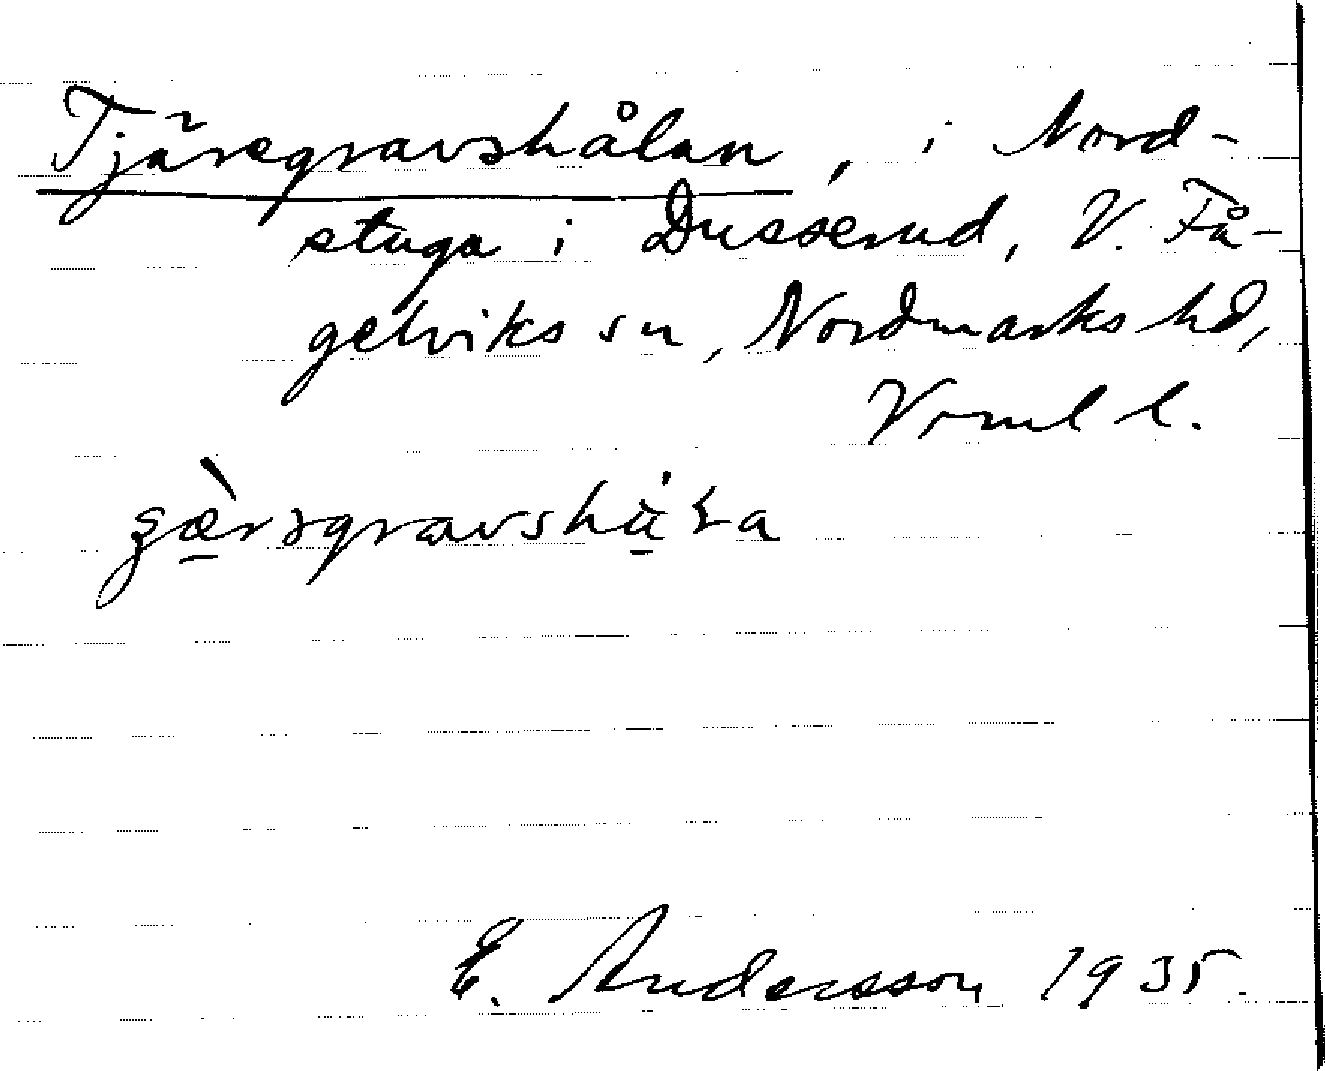 Tjäregravshålan, i Nord-
stuga i Dusserud, V. Få-
gelviks sn, Nordmarks hd,
Vrml l.
E. Andersson 1935.